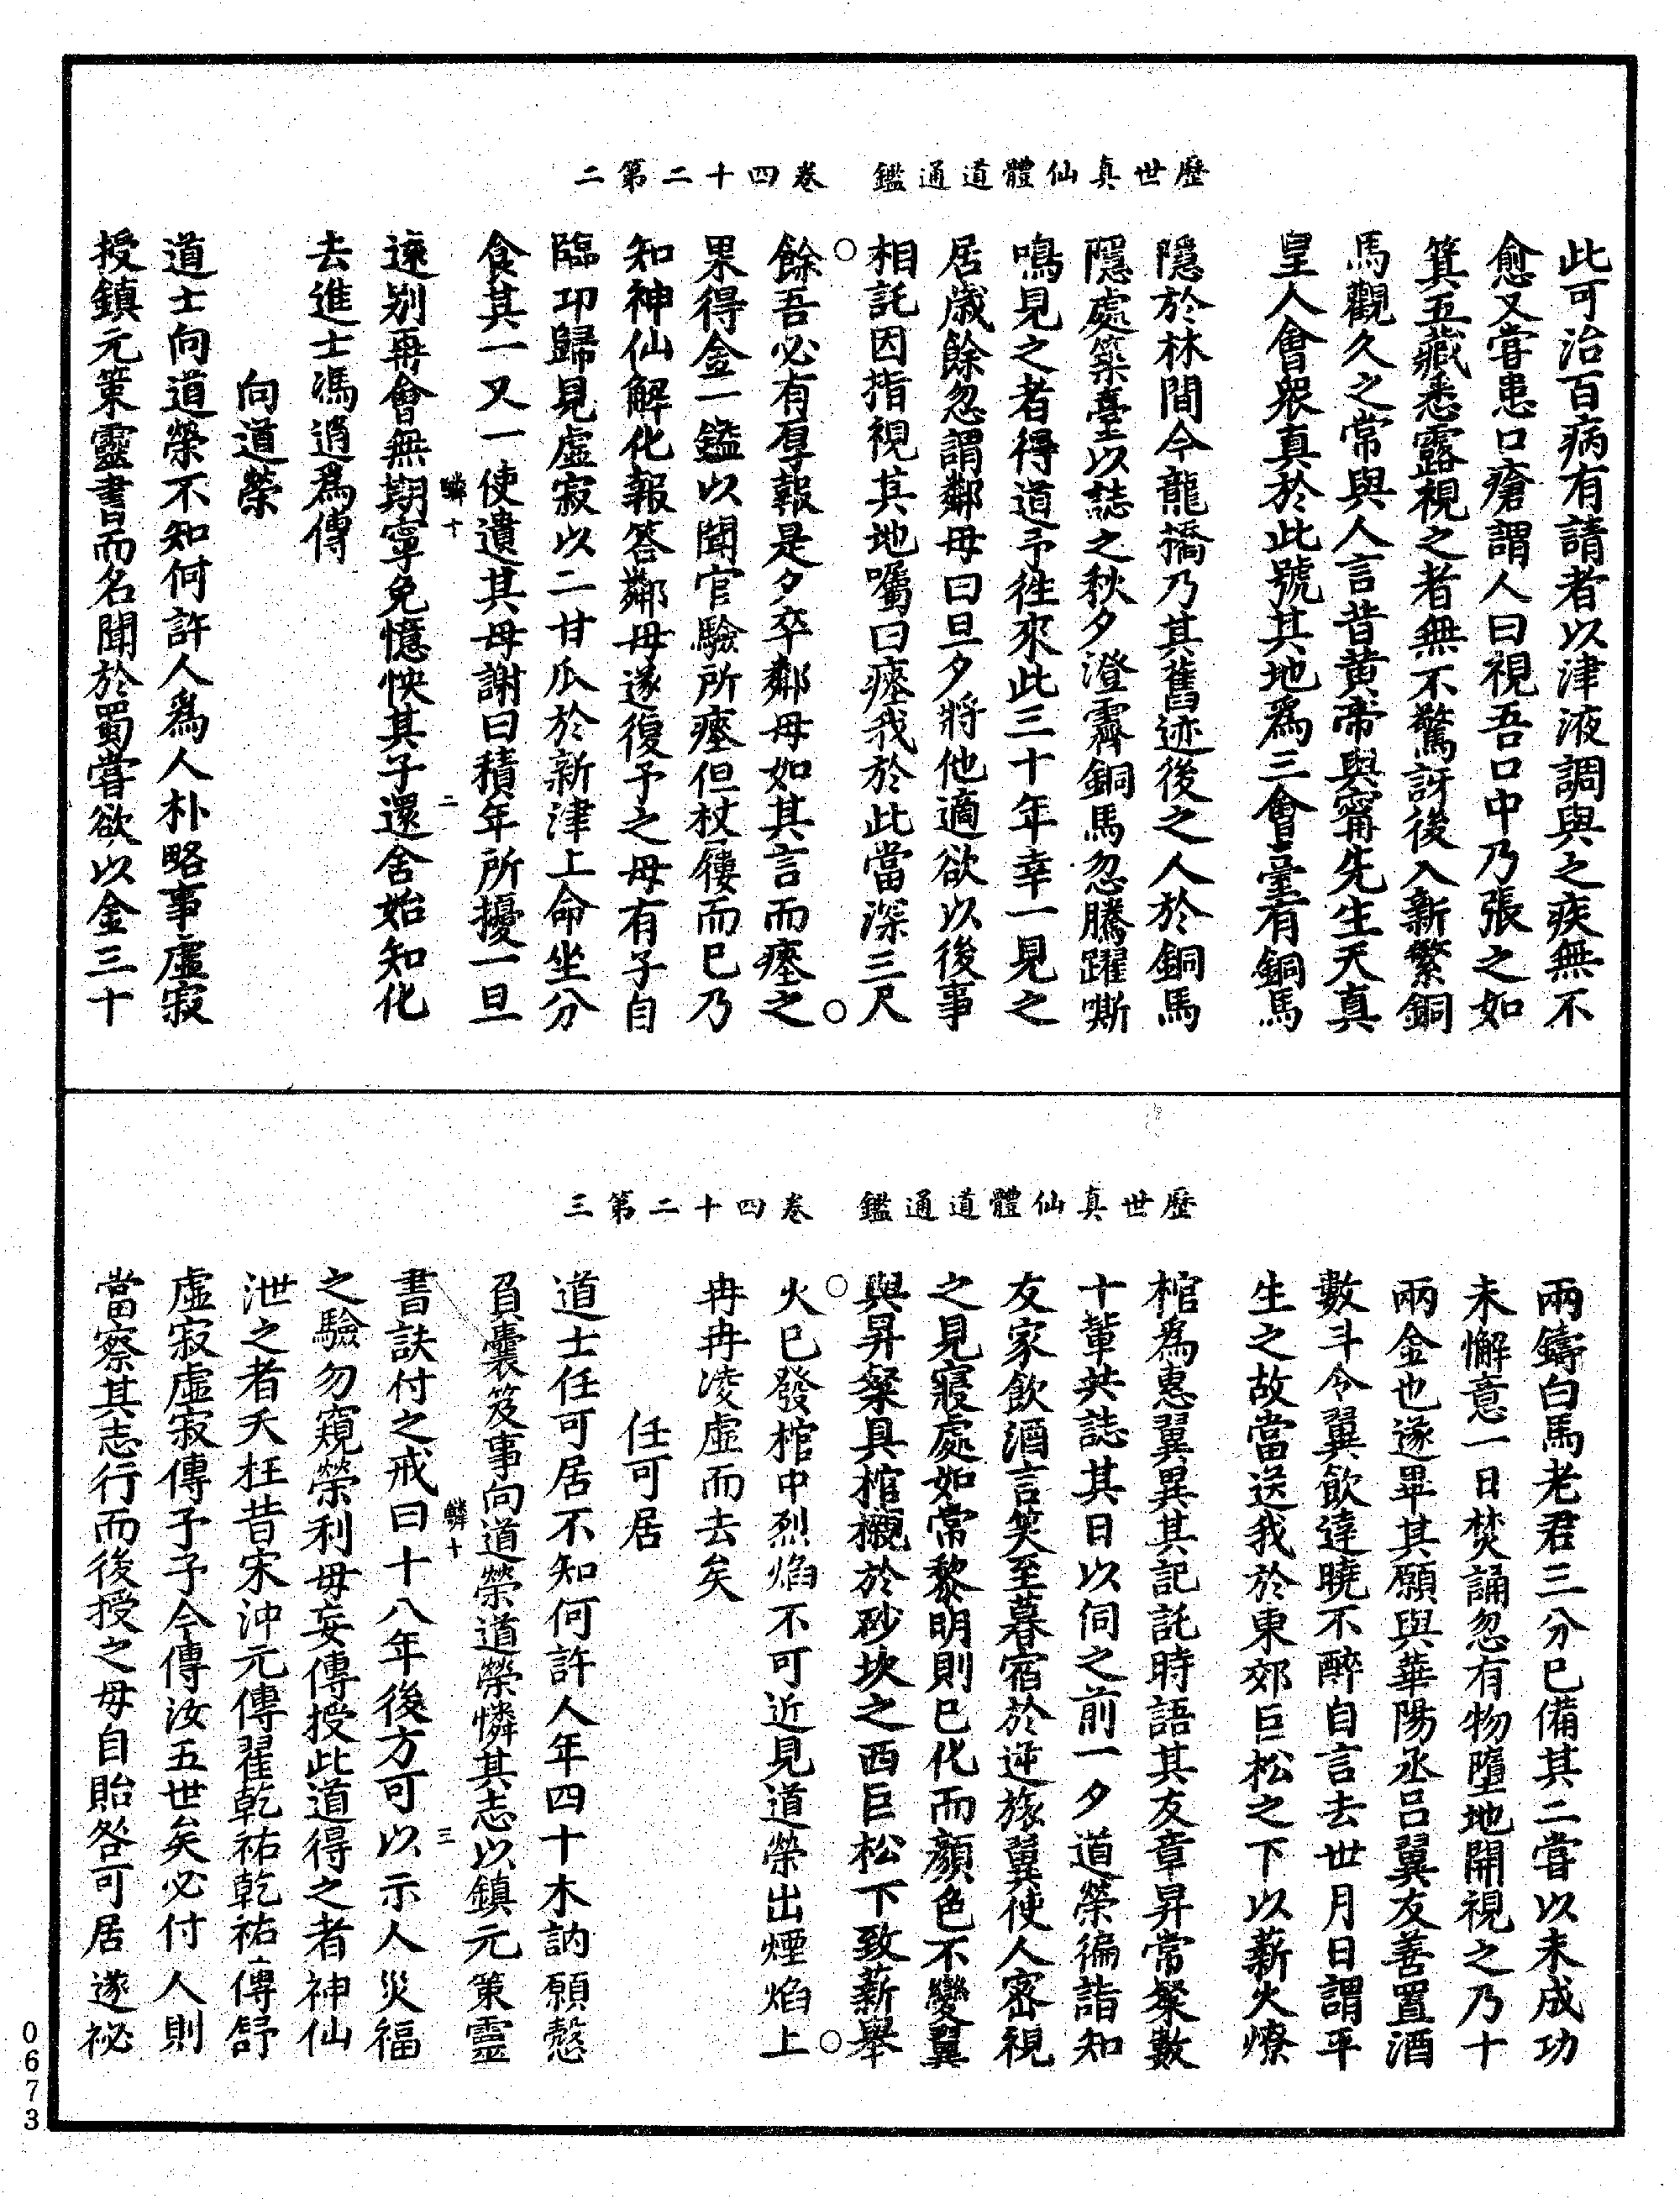 歷世真仙體道通鑑　卷四十二第二
此可治百病有請者以津液調與之疾無不
愈又嘗患口瘡謂人曰視吾口中乃張之如
箕五藏悉露視之者無不驚訝後入新繁銅
馬觀久之常與人言昔黄帝與甯先生天真
皇人會衆真於此號其地爲三會臺有銅馬
隱於林間今龍橋乃其舊迹後之人於銅馬
隱處築臺以誌之秋夕澄霽銅馬忽騰躍嘶
鳴見之者得道予徃來此三十年幸一見之
居歲餘忽謂鄰母曰旦夕將他適欲以後事
相託因指視其地囑曰瘞我於此當深三尺
餘吾必有厚報是夕卒鄰母如其言而瘞之
果得金一鎰以聞官驗所瘞但杖屨而已乃
知神仙解化報答鄰母遂復予之母有子自
臨邛歸見虛寂以二甘瓜於新津上命坐分
食其一又一使遺其母謝曰積年所擾一旦
遠别再會無期寧免憶怏其子還舍始知化
鱗十　二
去進士馮涓爲傳
向道榮
道士向道榮不知何許人爲人朴略事虛寂
授鎮元策靈書而名聞於蜀嘗欲以金三十
歷世真仙體道通鑑　卷四十二第三
兩鑄白馬老君三分已備其二嘗以未成功
未懈意一日焚誦忽有物墮地開視之乃十
兩金也遂畢其願與華陽丞呂翼友善置酒
數斗令翼飲達曉不醉自言去世月日謂平
生之故當送我於東郊巨松之下以薪火燎
棺爲惠翼異其記託時語其友章昇常粲數
十輩共誌其日以伺之前一夕道榮徧詣知
友家飲酒言笑至暮宿於逆旅翼使人密視
之見寢處如常黎明則已化而顏色不變翼
與昇粲具棺櫬於砂坎之西巨松下致薪舉
火已發棺中烈焰不可近見道榮出煙焰上
冉冉凌虛而去矣
任可居
道士任可居不知何許人年四十木訥願慤
負囊笈事向道榮道榮憐其志以鎮元策靈
鱗十　三
書訣付之戒曰十八年後方可以示人災福
之驗勿窺榮利毋妄傳授此道得之者神仙
泄之者夭枉昔宋沖元傳翟乾祐乾祐傳舒
虛寂虛寂傳予予今傳汝五世矣必付人則
當察其志行而後授之毋自貽咎可居遂祕
0673